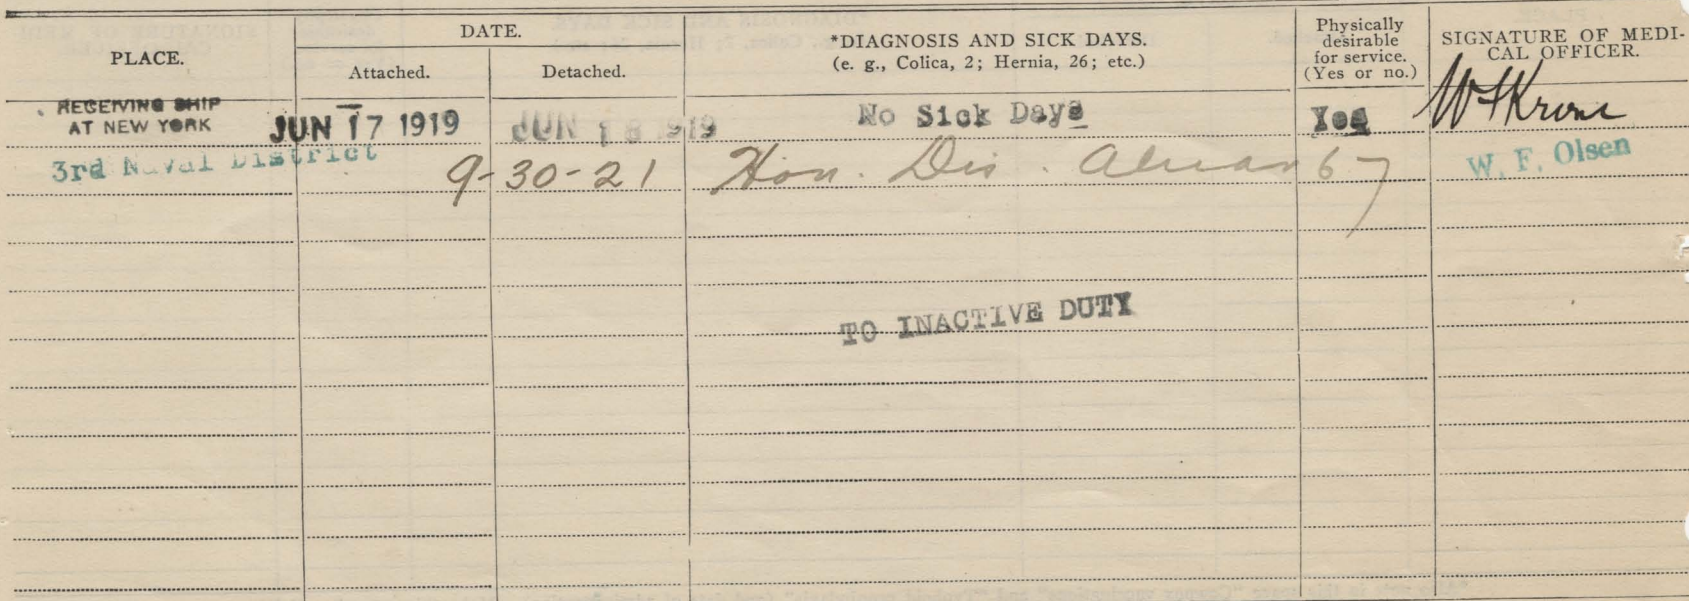 PLACE.
DATE.
Attached.
Detached.
*DIAGNOSIS AND SICK DAYS.
(e. g., Colica, 2; Hernia, 26; etc.)
Physically
desirable
for service.
(Yes or no.)
SIGNATURE OF MEDI-
CAL OFFICER.
RECEIVING SHIP
AT NEW YORK
JUN 17 1919
JUN 18 1919
No Sick Days
Yes
W F Krone
3rd Naval District
9-30-21
Hon. Dis. Alnav 67
W. F. Olsen
TO INACTIVE DUTY